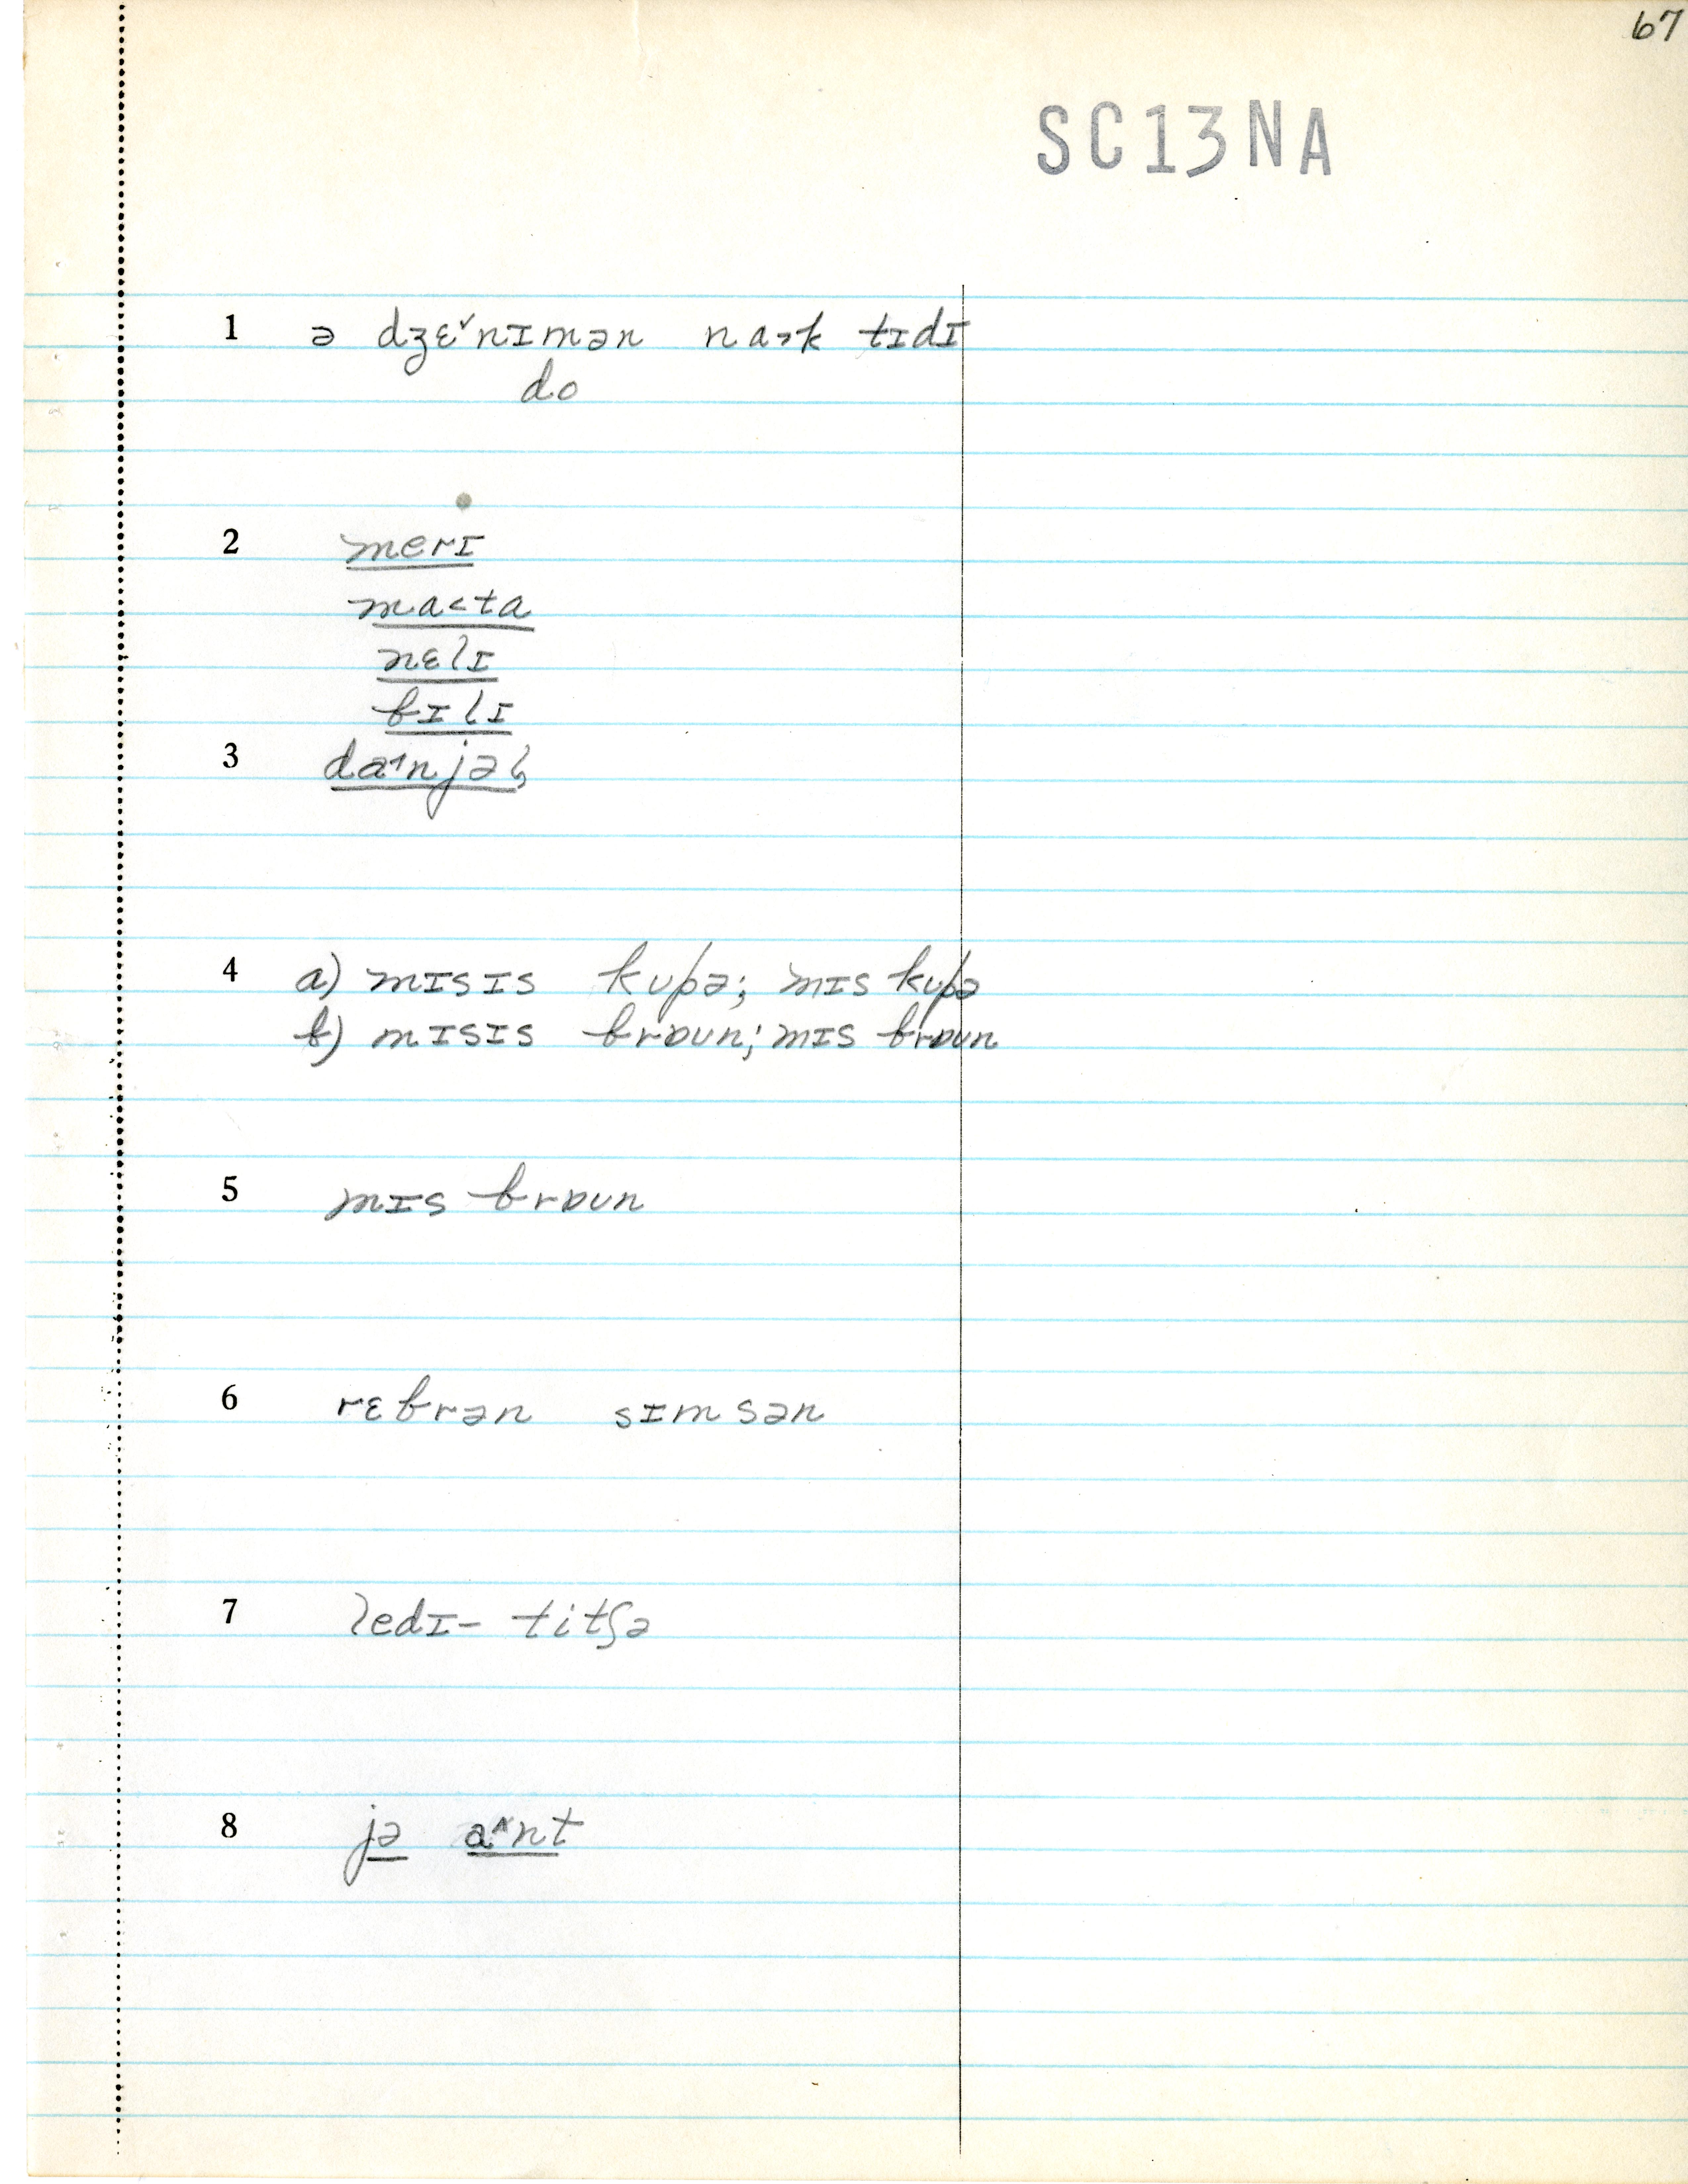 67
SC13NA
1 ə dʒɛ˅nɪmən na˃k tɪdɪ
do
2 merɪ
ma˂ta
nɛlɪ
bɪlɪ
3 da˄njəl̥
4 a) mɪsɪs kupə; mɪs kupə
b) mɪsɪs brɒun; mɪs brɒun
5 mɪs brɒun
6 rɛbrən sɪmsən
7 ledɪ- titʃə
8 jə a˄nt